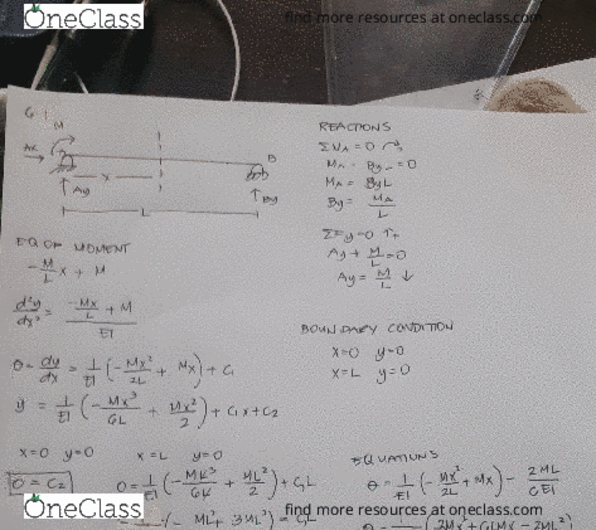 OneClass
find more resources at oneclass.com
G 1.
M
Ax
B
x
Ay
By
L
REACTIONS
ΣMA=0
MA - By L=0
MA = By L
By = MA/L
ΣFy=0 ↑+
Ay + M/L = 0
Ay = M/L ↓
EQ OF MOMENT
-M/L x + M
d²y/dx² = (-Mx/L + M)/EI
BOUNDARY CONDITION
x=0 y=0
x=L y=0
θ = dy/dx = 1/EI (-Mx²/2L + Mx) + C1
y = 1/EI (-Mx³/6L + Mx²/2) + C1x + C2
x=0 y=0 x=L y=0
0 = C2
0 = 1/EI (-ML³/6L + ML²/2) + C1L
EQUATIONS
θ = 1/EI (-Mx²/2L + Mx) - 2ML/6EI
OneClass
find more resources at oneclass.com